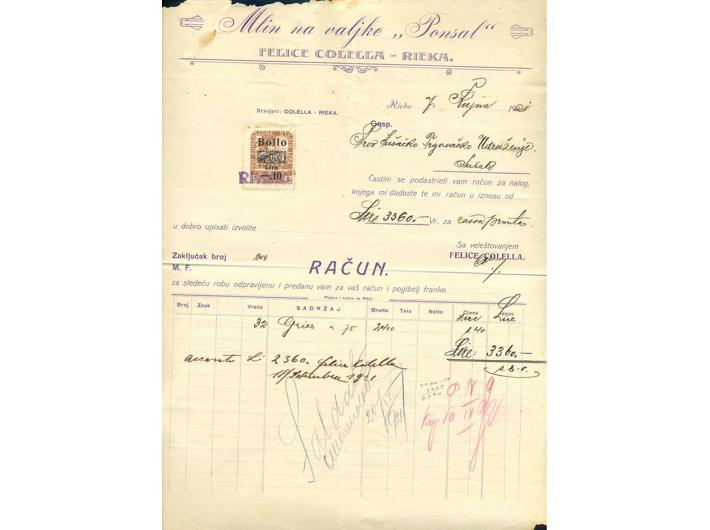 Mlin na valjke „Ponsal“
FELICE COLELLA - RIEKA.
Brzojavi: COLELLA - RIEKA.
Rieka 7. Rujna 192
Gosp.
Prvo Sušačko Trgovačko Udruženje.
Sušak
Bollo
Lire
-.10
Častim se podastrieti vam račun za nalog,
kojega mi dadoste te mi račun u iznosu od
Lire 3360.- Vr. za cassa prontas
u dobro upisati izvolite
Sa veleštovanjem
FELICE COLELLA.
Zaključak broj
M. F.
RAČUN.
za sledeću robu odpravljenu i predanu vam za vaš račun i pogibelj franko
Broj Znak Vreća SADRŽAJ Brutto Tara Netto Cijena Iznos
Lire Lire
32 Gries a 75 2400 1.40
Lire: 3360.-
s. E. o.
acconto Li 2360.- felice colella
1921
Saldo